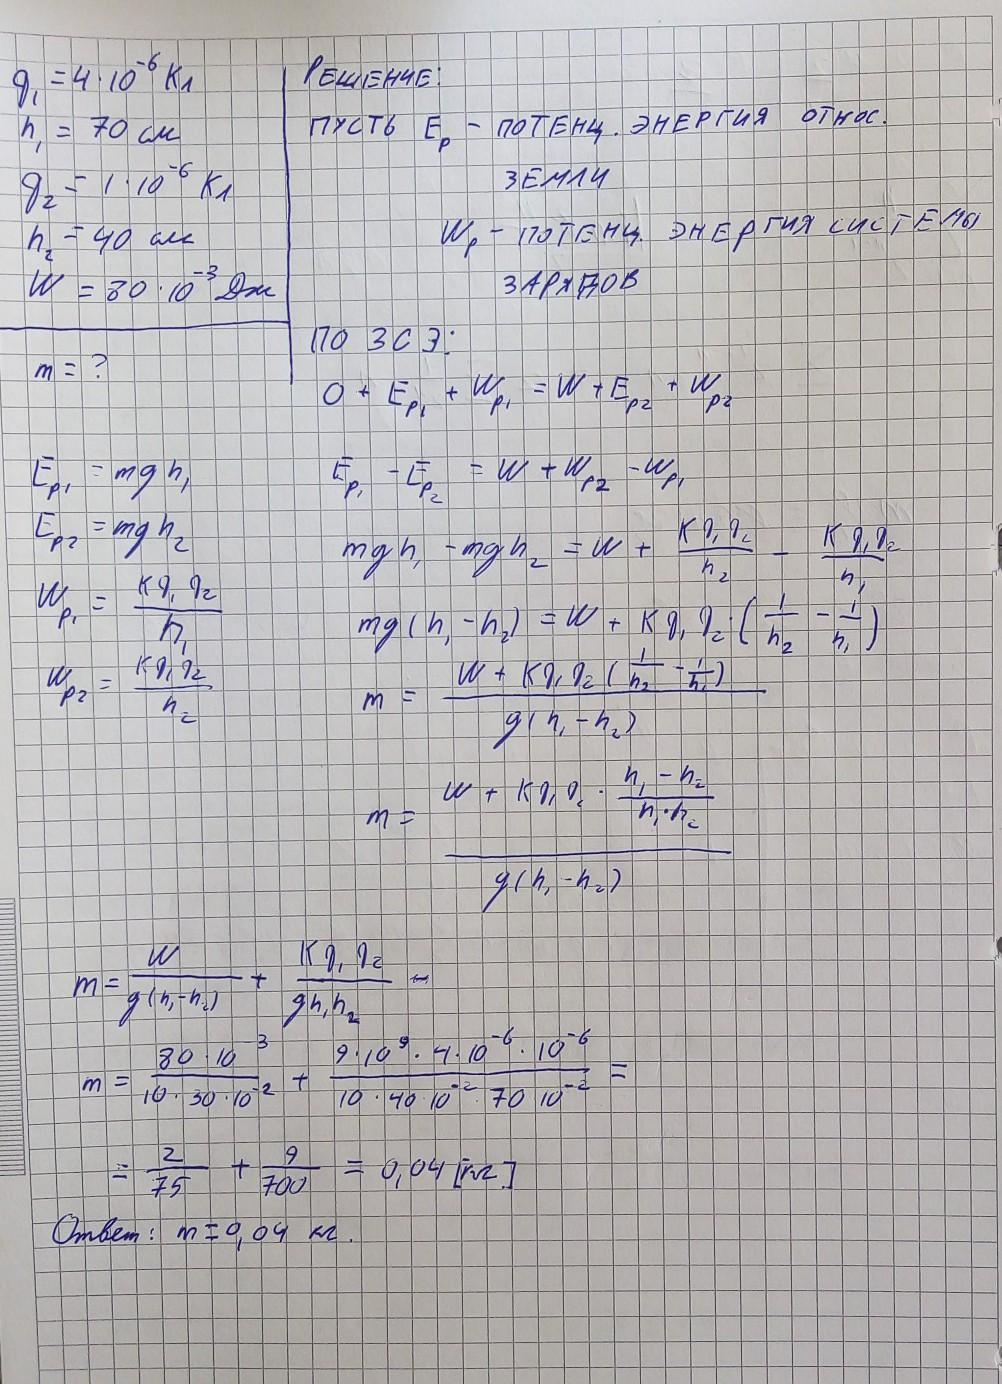 q₁ = 4·10⁻⁶ Кл
h₁ = 70 см
q₂ = 1·10⁻⁶ Кл
h₂ = 40 см
W = 80·10⁻³ Дж
m = ?
РЕШЕНИЕ:
ПУСТЬ Eₚ – ПОТЕНЦ. ЭНЕРГИЯ ОТНОС.
ЗЕМЛИ
Wₚ – ПОТЕНЦ. ЭНЕРГИЯ СИСТЕМЫ
ЗАРЯДОВ
ПО ЗСЭ:
0 + Eₚ₁ + Wₚ₁ = W + Eₚ₂ + Wₚ₂
Eₚ₁ = mgh₁
Eₚ₂ = mgh₂
Wₚ₁ = Kq₁q₂/h₁
Wₚ₂ = Kq₁q₂/h₂
Eₚ₁ – Eₚ₂ = W + Wₚ₂ – Wₚ₁
mgh₁ – mgh₂ = W + Kq₁q₂/h₂ – Kq₁q₂/h₁
mg(h₁ – h₂) = W + Kq₁q₂·(1/h₂ – 1/h₁)
m = (W + Kq₁q₂(1/h₂ – 1/h₁))/(g(h₁ – h₂))
m = (W + Kq₁q₂·(h₁ – h₂)/(h₁·h₂))/(g(h₁ – h₂))
m = W/(g(h₁–h₂)) + Kq₁q₂/(gh₁h₂) –
m = (80·10⁻³)/(10·30·10⁻²) + (9·10⁹·4·10⁻⁶·10⁻⁶)/(10·40·10⁻²·70·10⁻²) =
= 2/75 + 9/700 = 0,04 [кг]
Ответ: m = 0,04 кг.